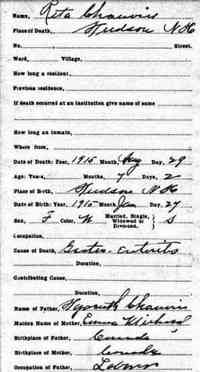 Name, Rita Chauvin
Place of Death, Hudson N.H.
No. Street.
Ward, Village.
How long a resident,
Previous residence,
If death occurred at an institution give name of same
How long an inmate,
Where from,
Date of Death: Year, 1915 Month, Aug Day, 29
Age: Years, Months, 7 Days, 2
Place of Birth, Hudson N.H.
Date of Birth: Year, 1915 Month, Jan Day, 27
Sex, F Color, W Married, Single, Widowed or Divorced, S
Occupation,
Cause of Death, Gastro-Enteritis
Duration,
Contributing Cause,
Duration,
Name of Father, Chauvin
Maiden Name of Mother, Emma
Birthplace of Father, Canada
Birthplace of Mother, Canada
Occupation of Father, Labor